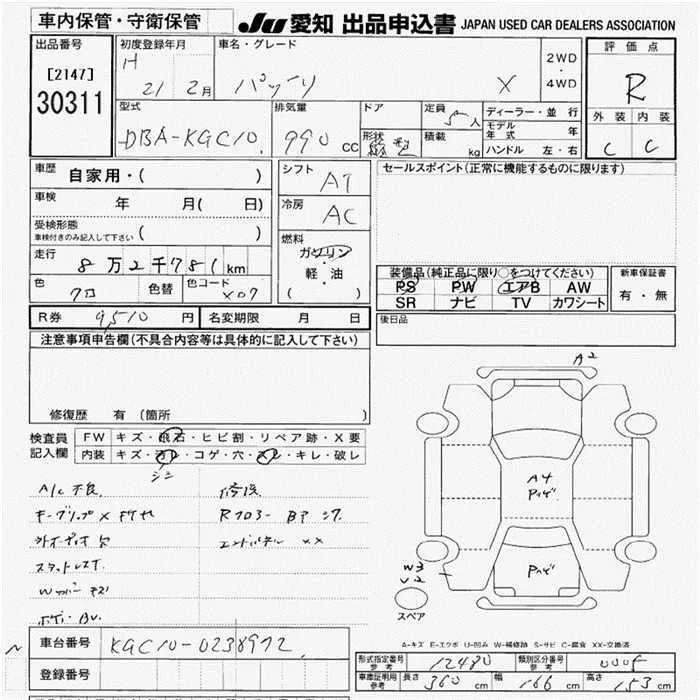 車内保管・守衛保管
JU 愛知 出品申込書 JAPAN USED CAR DEALERS ASSOCIATION
出品番号
[2147]
30311
初度登録年月
H
21 2月
車名・グレード
パッソ
X
2WD
・
4WD
評価点
R
外装 内装
C C
型式
DBA-KGC10
排気量
990 cc
ドア
形状
定員
5人
積載
kg
ディーラー・並行
モデル年式 年
ハンドル 左・右
車歴
自家用・( )
車検
年 月( 日)
受検形態
車検付きのみ記入して下さい ( )
走行
8万2千781km
色
クロ
色替
色コード
X07
シフト
AT
冷房
AC
燃料
ガソリン
・
軽・油
( )
セールスポイント(正常に機能するものに限ります)
装備品(純正品に限り○をつけてください)
PS PW エアB AW
SR ナビ TV カワシート
新車保証書
有・無
R券 9,510 円 名変期限 月 日
後日品
注意事項申告欄(不具合内容等は具体的に記入して下さい)
修復歴 有(箇所 )
検査員
記入欄
FW キズ・飛石・ヒビ割・リペア跡・X要
内装 キズ・汚レ・コゲ・穴・スレ・キレ・破レ
シミ
A/C不良 修復
外オーディオ欠
A2
A4
W3
U2
スペア
A-キズ E-エクボ U-凹み W-補修跡 S-サビ C-腐食 XX-交換済
車台番号 KGC10-0238972
登録番号
形式指定番号 参考 12480 類別区分番号 参考
車庫証明用 参考 長さ 360 cm 幅 166 cm 高さ 153 cm